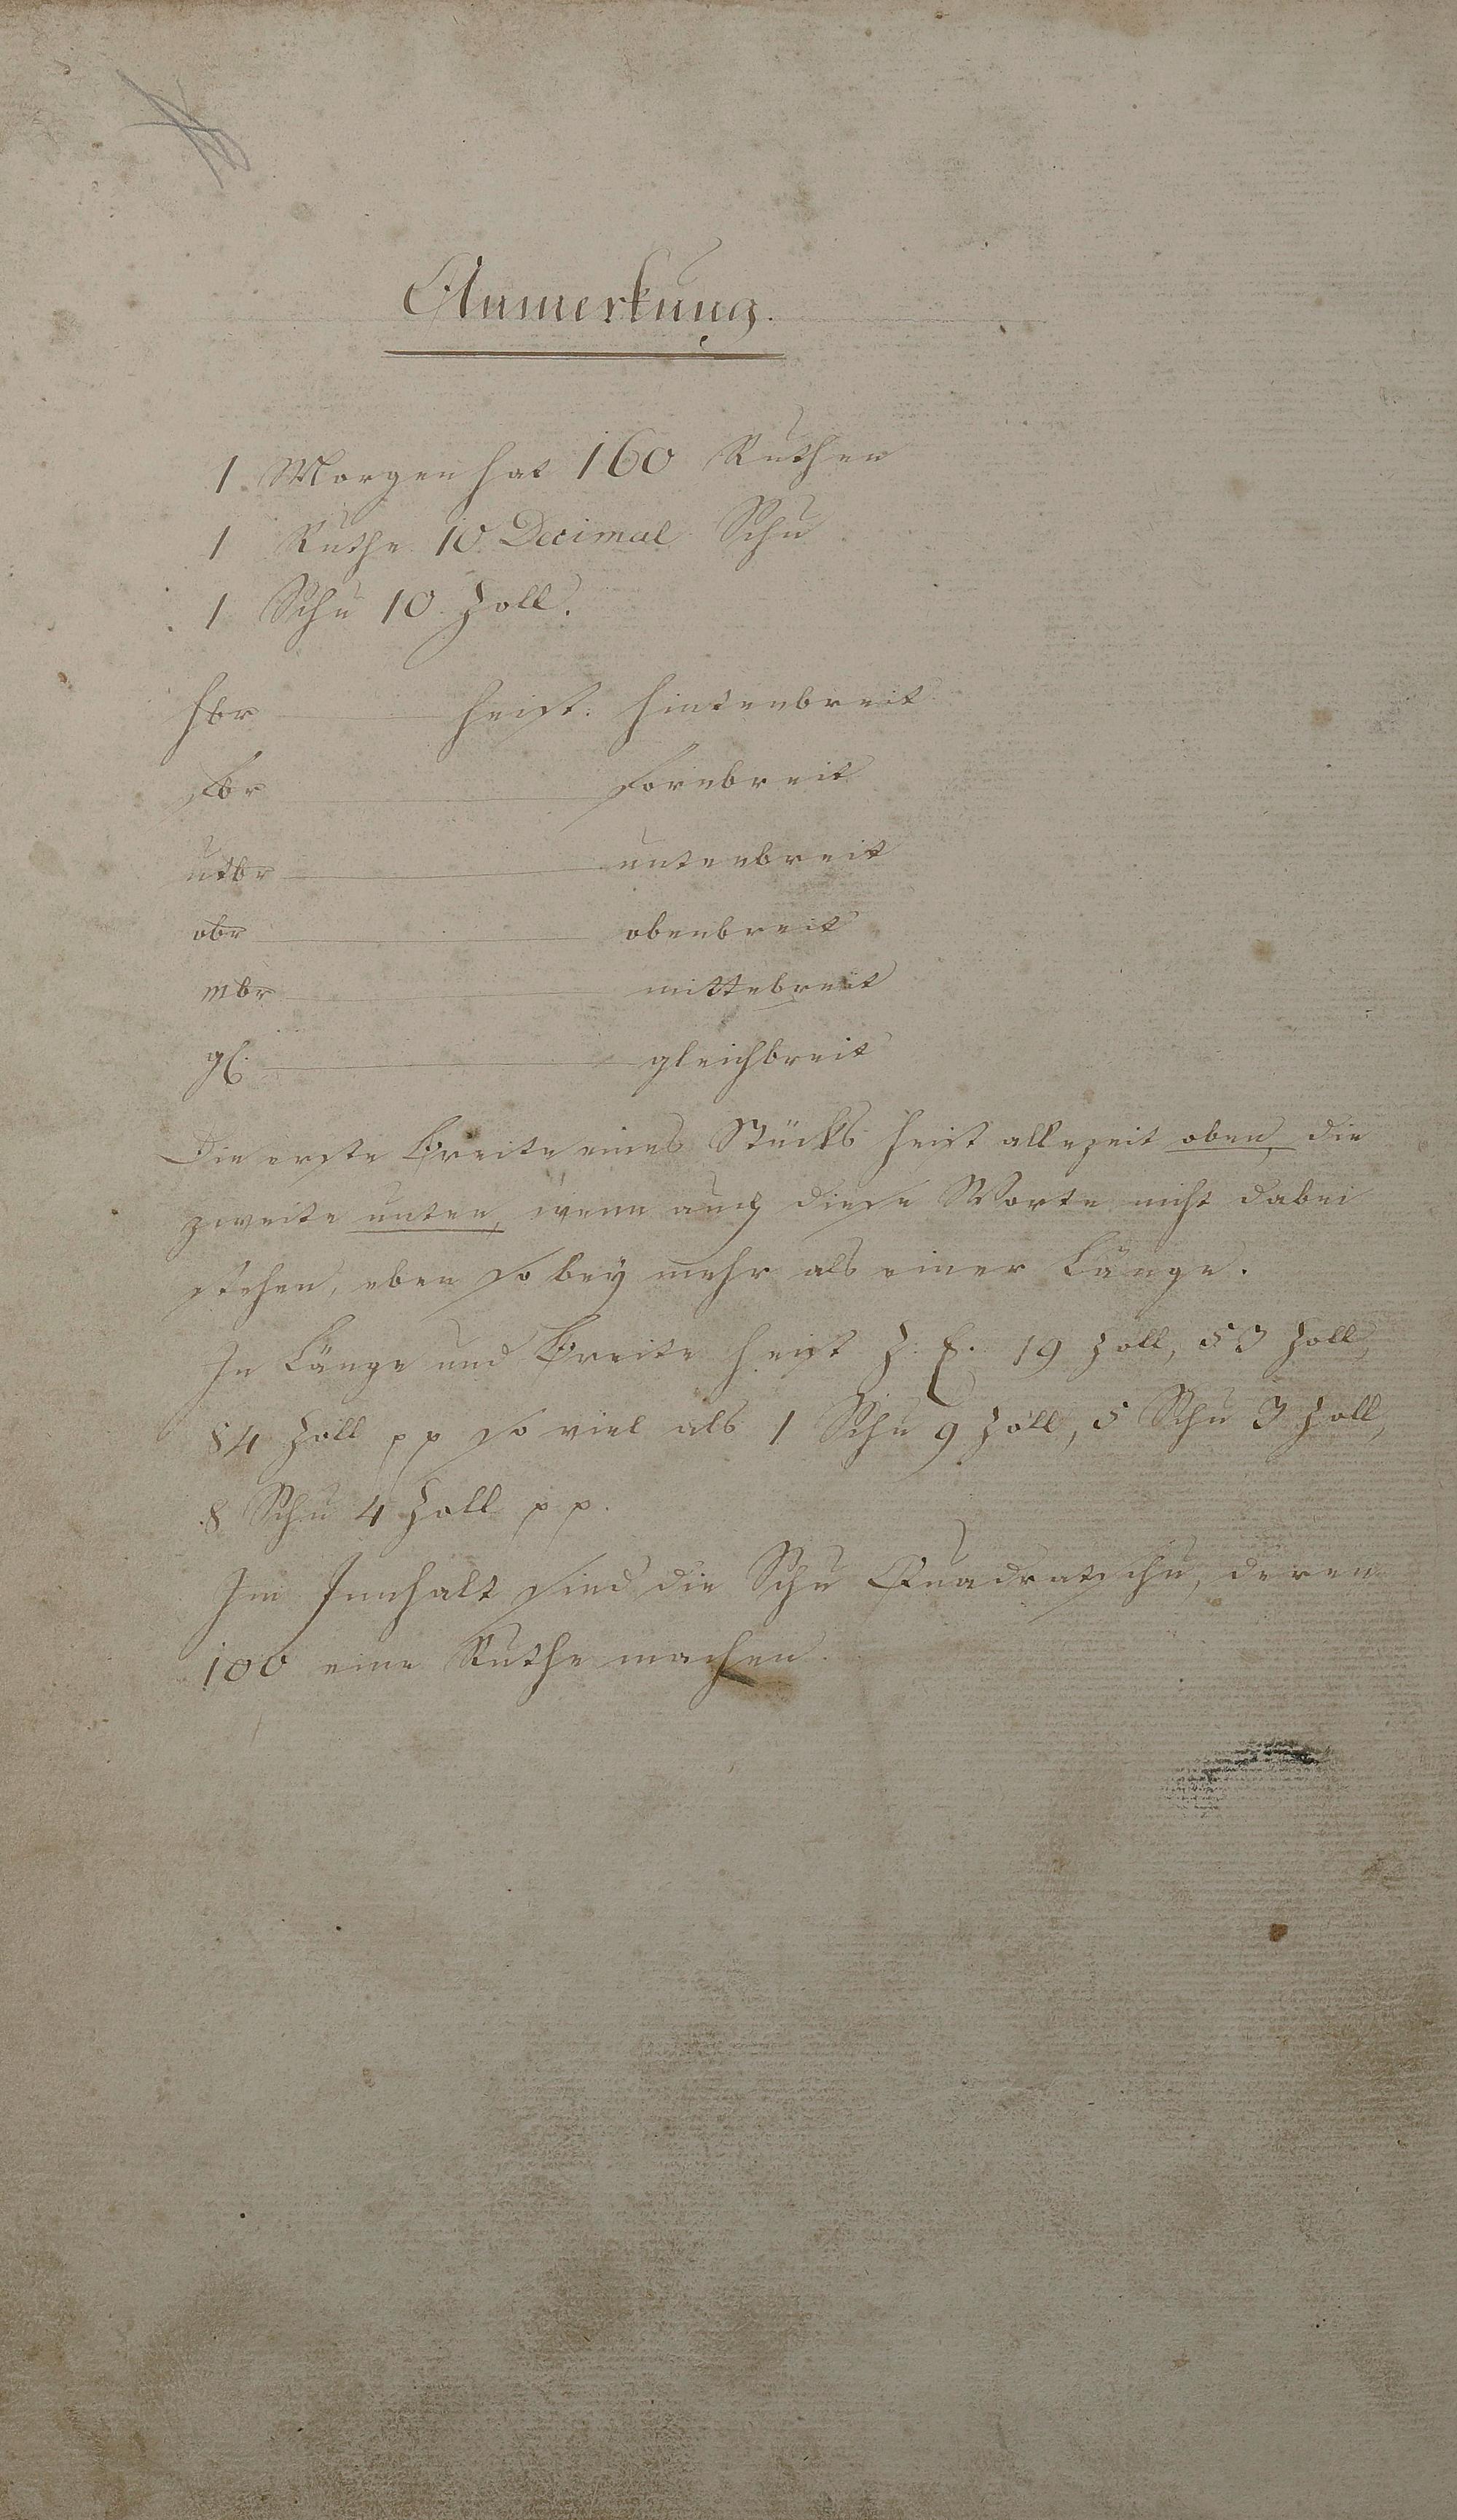 Anmerkung.
1 Morgen hat 160 Ruthen
1 Ruthe 10 Decimal Schu
1 Schu 10 Zoll.
hbr heist: hintenbreit
fbr fornbreit
utbr untenbreit
obr obenbreit
mbr mittebreit
gl. gleichbreit
Die erste Breite eines Stücks heist allezeit oben, die
zweite unten, wenn auch diese Worte nicht dabei
stehen, eben so bey mehr als einer Länge.
In Länge und Breite heist z. E. 19 Zoll, 53 Zoll,
84 Zoll pp so viel als 1 Schu 9 Zoll, 5 Schu 3 Zoll,
8 Schu 4 Zoll pp.
Im Innhalt sind die Schu Quadratschu, deren
100 eine Ruthe machen.